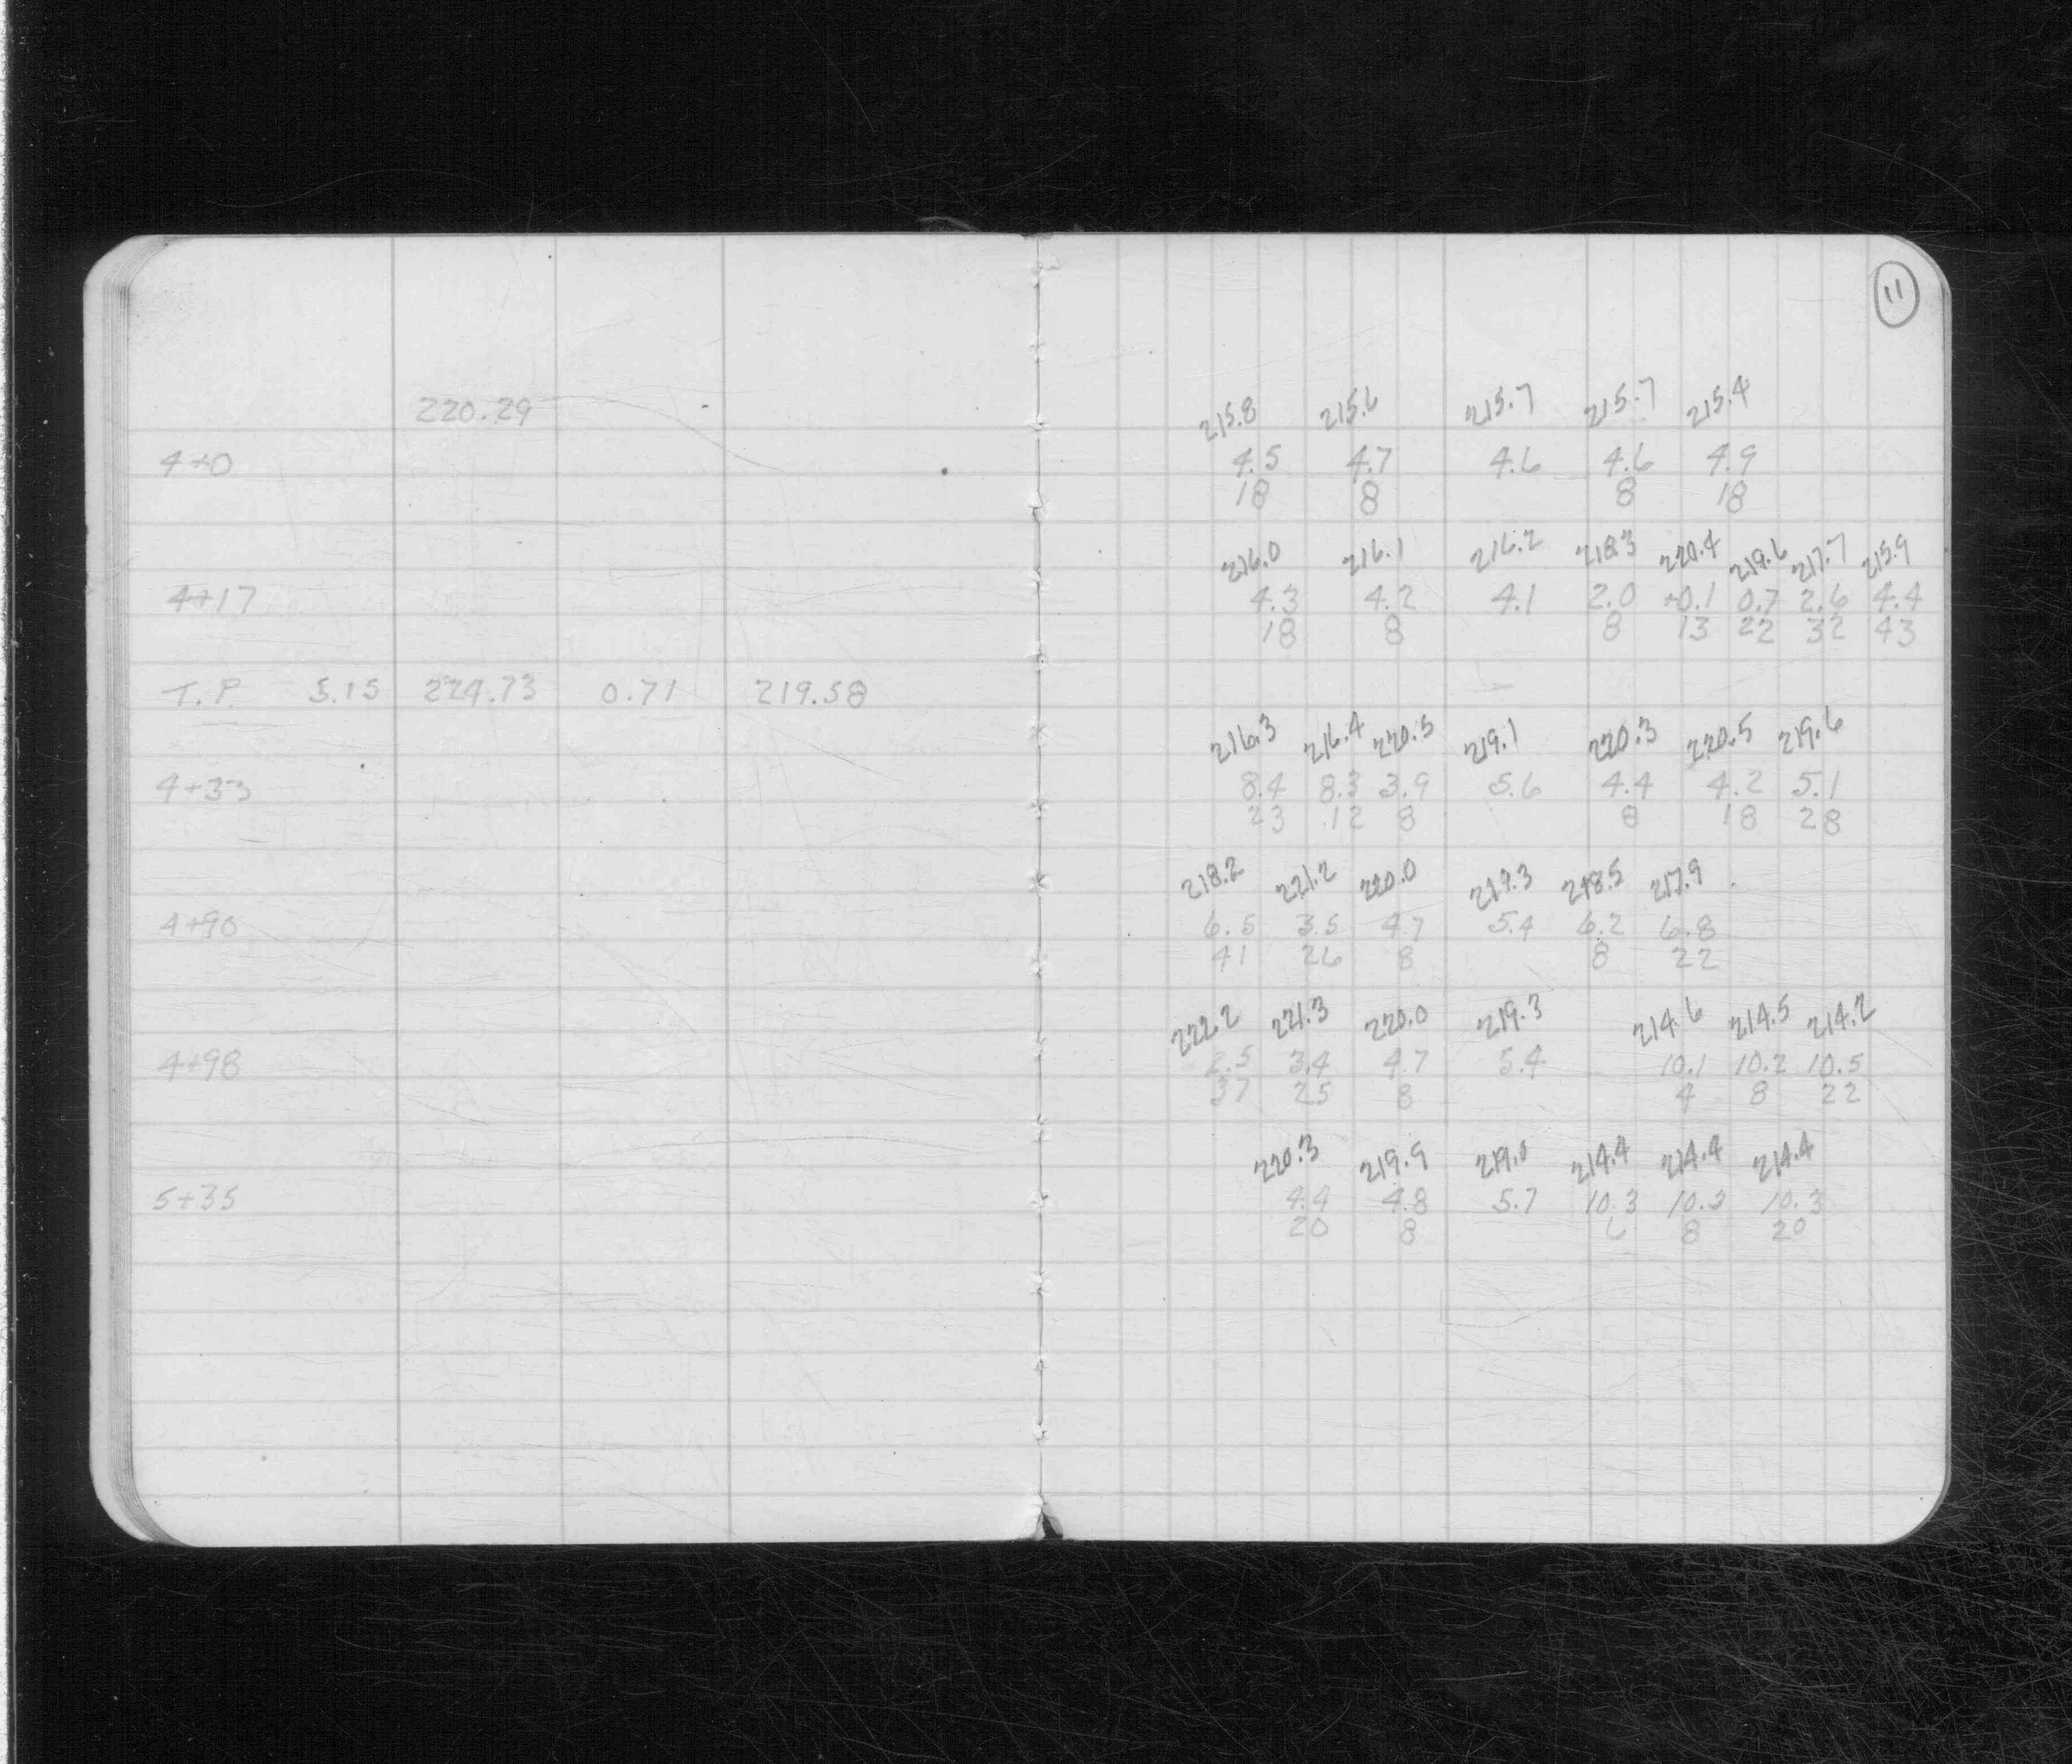 11
220.29
215.8 215.6 215.7 215.7 215.4
4+0 4.5 4.7 4.6 4.6 4.9
18 8 8 18
216.0 216.1 216.2 218.3 220.4 219.6 217.7 215.9
4+17 4.3 4.2 4.1 2.0 +0.1 0.7 2.6 4.4
18 8 8 13 22 32 43
T.P. 5.15 224.73 0.71 219.58
216.3 216.4 220.5 219.1 220.3 220.5 219.6
4+33 8.4 8.3 3.9 5.6 4.4 4.2 5.1
23 12 8 8 18 28
218.2 221.2 220.0 219.3 218.5 217.9
4+90 6.5 3.5 4.7 5.4 6.2 6.8
41 26 8 8 22
222.2 221.3 220.0 219.3 214.6 214.5 214.2
4+98 2.5 3.4 4.7 5.4 10.1 10.2 10.5
37 25 8 4 8 22
220.3 219.9 219.0 214.4 214.4 214.4
5+35 4.4 4.8 5.7 10.3 10.3 10.3
20 8 6 8 20